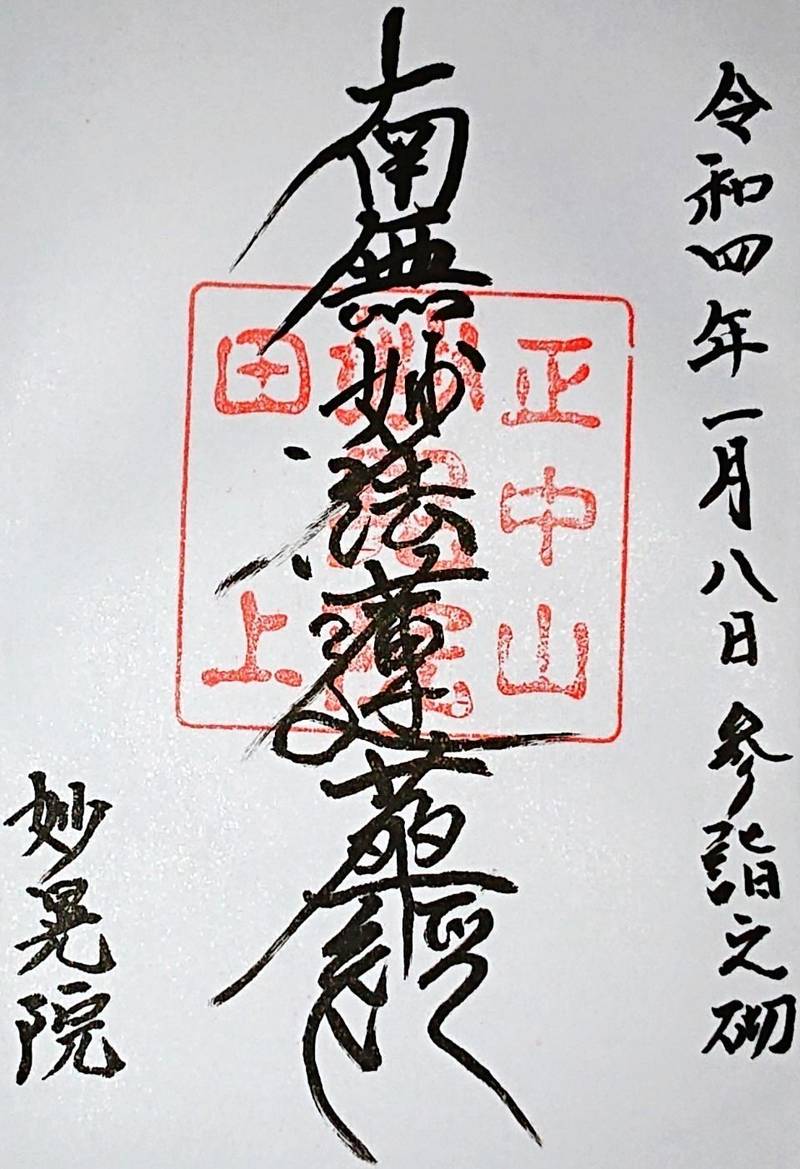 令和四年一月八日 参詣之砌
南無妙法蓮華經
正中山
妙晃院
田上
妙晃院